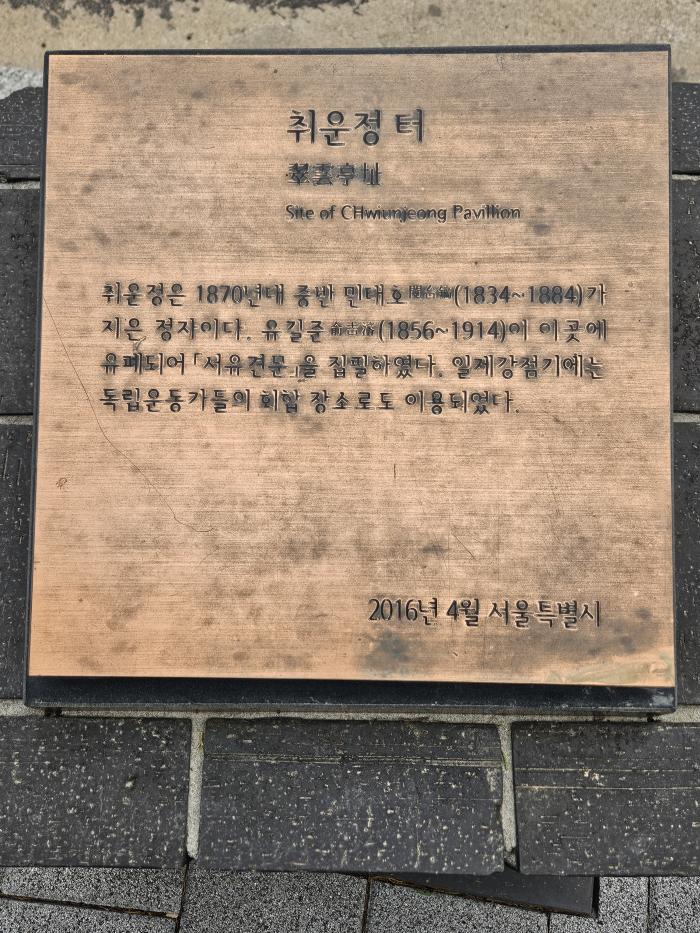 취운정 터
翠雲亭址
Site of CHwiunjeong Pavillion
취운정은 1870년대 중반 민대호(1834~1884)가
지은 정자이다. 유길준 兪吉濬(1856~1914)이 이곳에
유폐되어 「서유견문」을 집필하였다. 일제강점기에는
독립운동가들의 회합 장소로도 이용되었다.
2016년 4월 서울특별시